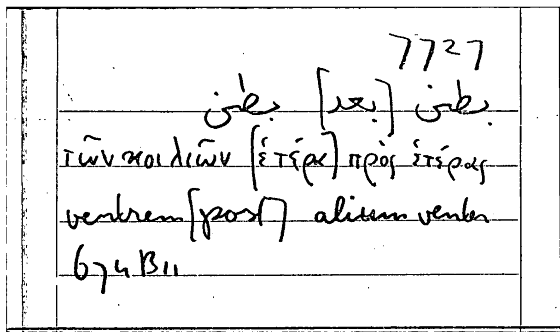 7727
بطن [بعد] بطن
τῶν κοιλιῶν [ἑτέρα] πρὸς ἑτέρας
ventrem [post] alium venter
674 B11